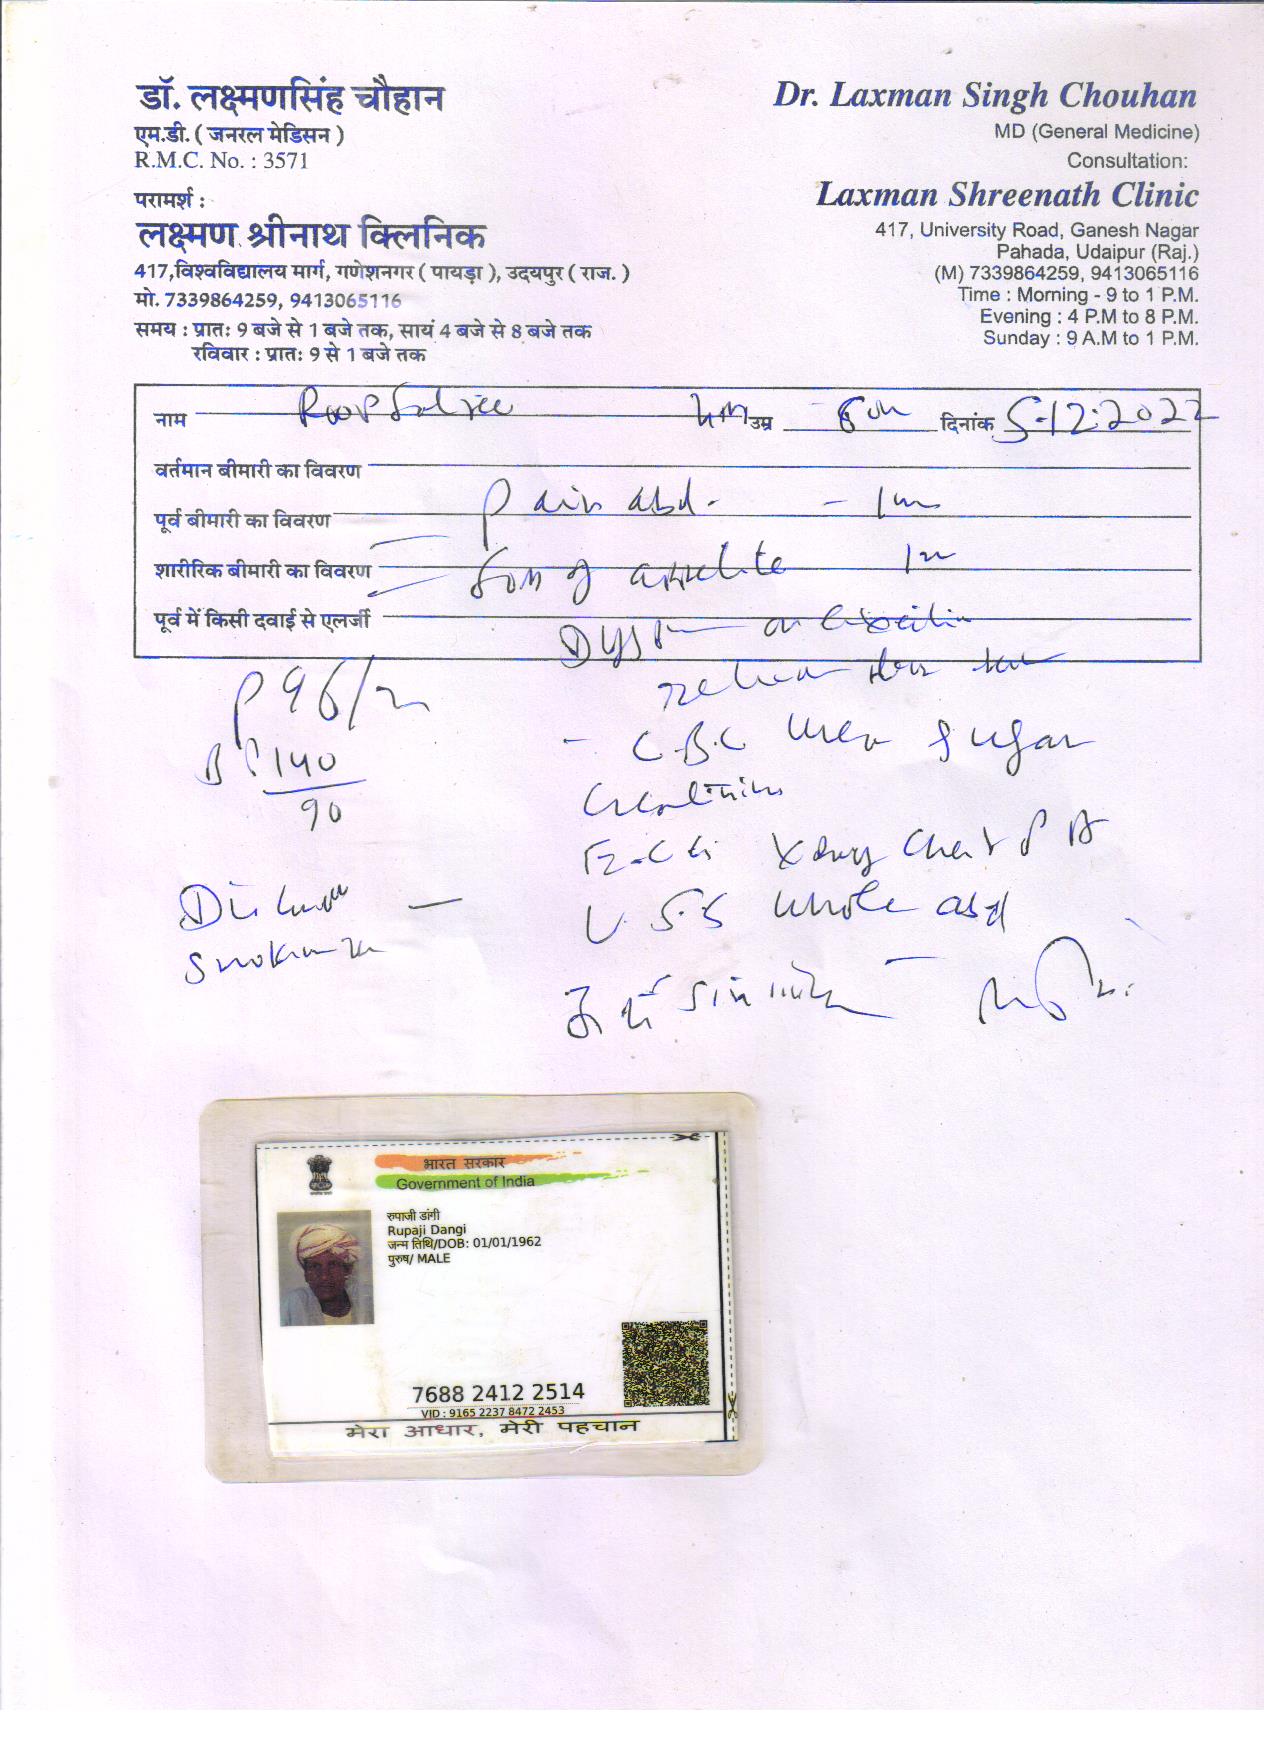 डॉ. लक्ष्मणसिंह चौहान
एम.डी. ( जनरल मेडिसन )
R.M.C. No. : 3571
परामर्श :
लक्ष्मण श्रीनाथ क्लिनिक
417,विश्वविद्यालय मार्ग, गणेशनगर ( पायड़ा ), उदयपुर ( राज. )
मो. 7339864259, 9413065116
समय : प्रातः 9 बजे से 1 बजे तक, सायं 4 बजे से 8 बजे तक
रविवार : प्रातः 9 से 1 बजे तक
Dr. Laxman Singh Chouhan
MD (General Medicine)
Consultation:
Laxman Shreenath Clinic
417, University Road, Ganesh Nagar
Pahada, Udaipur (Raj.)
(M) 7339864259, 9413065116
Time : Morning - 9 to 1 P.M.
Evening : 4 P.M to 8 P.M.
Sunday : 9 A.M to 1 P.M.
नाम उम्र दिनांक 5-12-2022
वर्तमान बीमारी का विवरण
पूर्व बीमारी का विवरण Pain abd. -
शारीरिक बीमारी का विवरण of appetite
पूर्व में किसी दवाई से एलर्जी
on
P 96/m
BP 140
90
- C.B.C Urea Sugar
Creatinine
E.C.G Xray Chest P A
U.S.G whole abd
भारत सरकार
Government of India
रुपाजी डांगी
Rupaji Dangi
जन्म तिथि/DOB: 01/01/1962
पुरुष/ MALE
7688 2412 2514
VID : 9165 2237 8472 2453
मेरा आधार, मेरी पहचान